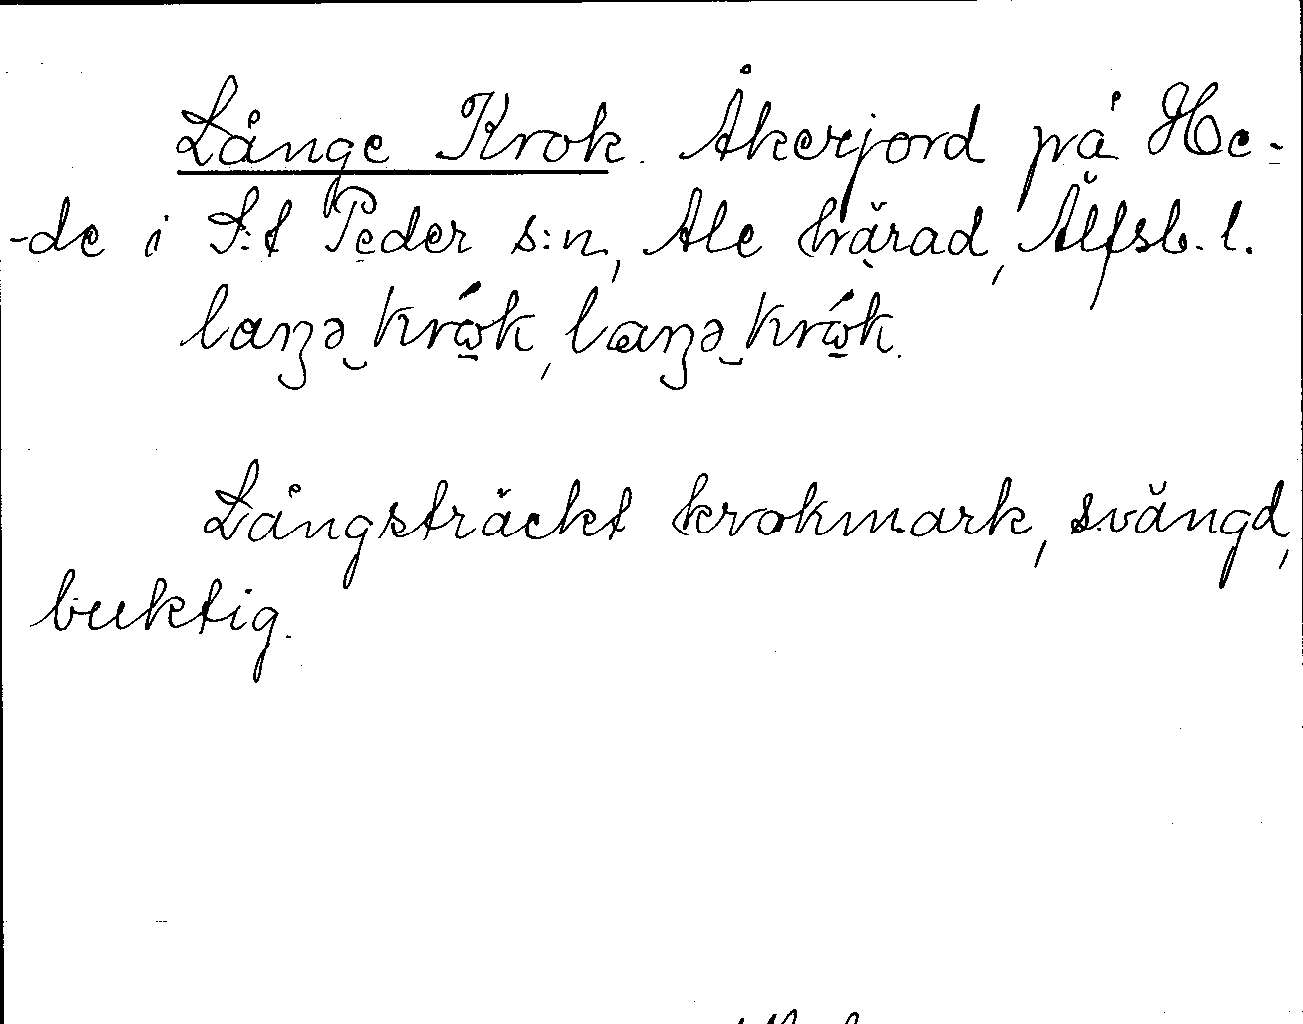 Långe Krok. Åkerjord på He-
-de i S:t Peder s:n, Ale härad, Älfsb. l.
laŋə krώ̲k, lɑŋə krώ̲k.
Långsträckt krokmark, svängd,
buktig.